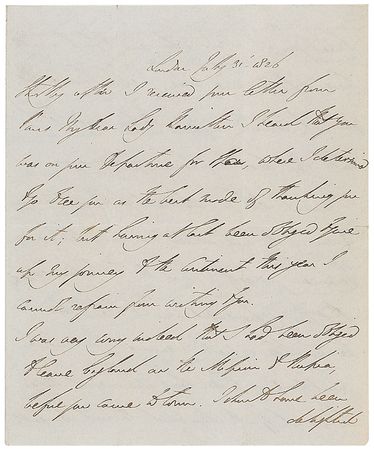 London July 31st 1826
Shortly after I received your letter from
Paris My dear Lady Hamilton I heard that you
was on your departure for                where I determined
to see you as the best mode of thanking you
for it; but having at last been obliged to give
up my journey to the continent this year I
cannot refrain from writing to you.
I was very sorry indeed that I had been obliged
to leave England on the Mission to Russia
before you came to town. I should have been
delighted